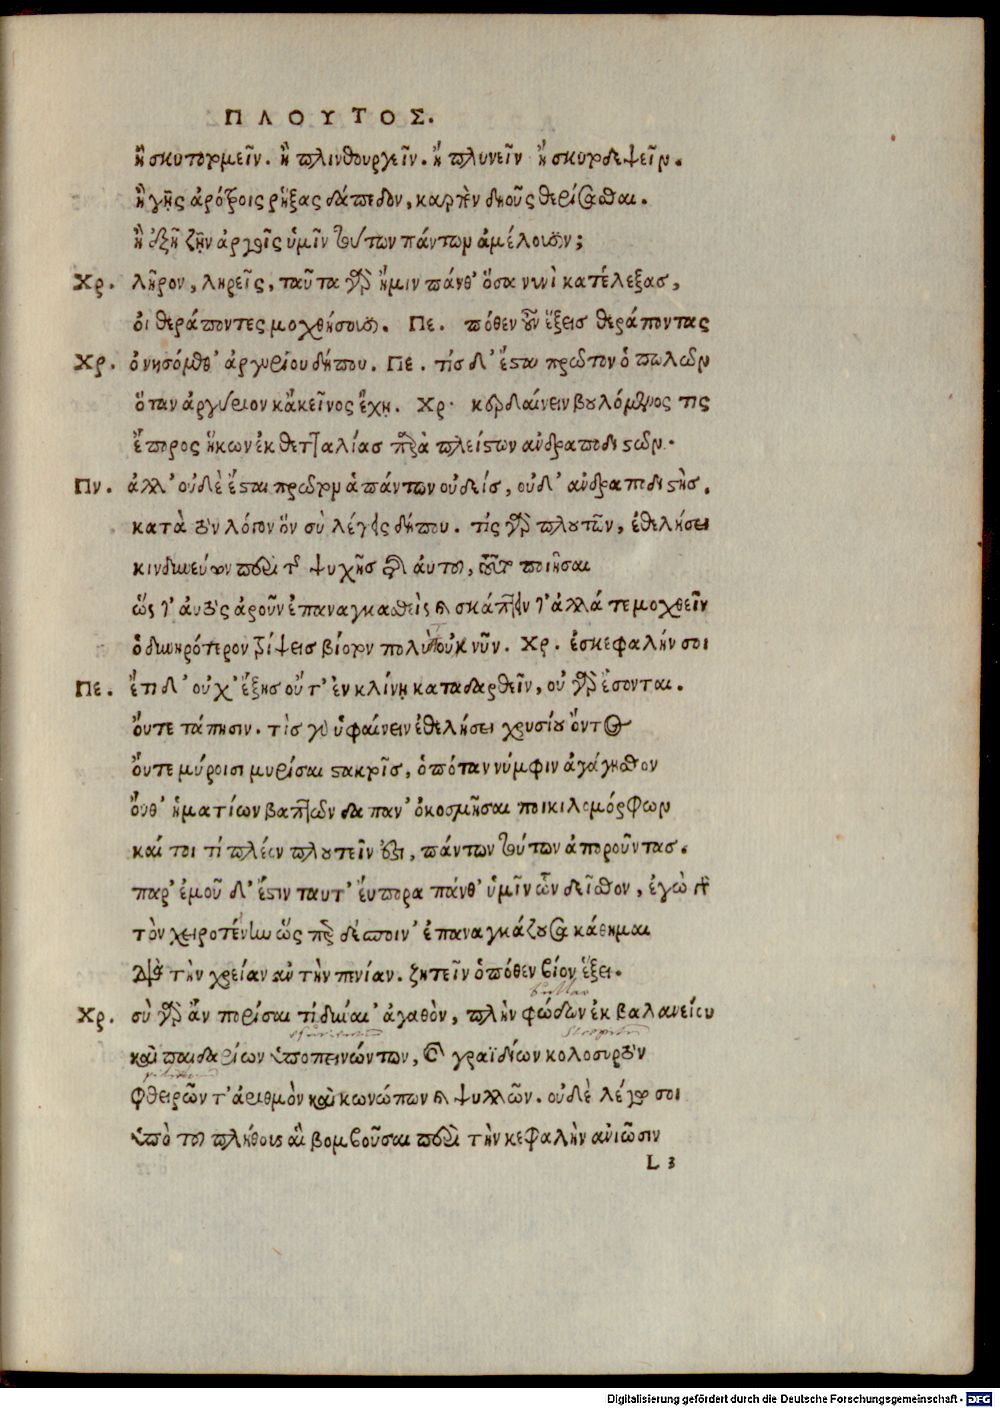 ΠΛΟΥΤΟΣ.
ἢ σκυτοτομεῖν. ἢ πλινθουργεῖν. ἢ πλυνεῖν ἢ σκυτοδεψεῖν.
ἢ γῆς ἀρότροις ῥήξας δάπεδον, καρπὸν δηοῦς θερίσασθαι.
ἢ ἐξῇ ζῆν ἀργοῖς ὑμῖν τούτων πάντων ἀμέλουσιν;
Χρ. λῆρον, ληρεῖς, ταῦτα γὰρ ἥμιν πάνθ' ὅσα νυνὶ κατέλεξας,
οἱ θεράποντες μοχθήσουσι. Πε. πόθεν οὖν ἕξεις θεράποντας
Χρ. ὀνησόμεθ' ἀργυρίου δήπου. Πε. τίς δ' ἔσται πρῶτον ὁ πωλῶν
ὅταν ἀργύριον κἀκεῖνος ἔχῃ. Χρ. κερδαίνειν βουλόμενος τις
ἔμπορος ἥκων ἐκ θετταλίας παρὰ πλείστων ἀνδραποδιστῶν.
Πν. ἀλλ' οὐδὲ ἔσται πρῶτον ἁπάντων οὐδείς, οὐδ' ἀνδραποδιστὴς.
κατὰ τὸν λόγον ὃν σὺ λέγεις δήπου. τίς γὰρ πλουτῶν, ἐθελήσει
κινδυνεύων περὶ τῆς ψυχῆς τῆς αὑτοῦ, τοῦτο ποιῆσαι
ὥς τ' αὐτὸς ἀροῦν ἐπαναγκασθεὶς καὶ σκάπτειν τ' ἀλλά τε μοχθεῖν
ὀδυνηρότερον τρίψεις βίοτον πολὺ τοῦ νῦν. Χρ. ἐς κεφαλήν σοι
Πε. ἔτι δ' οὐχ' ἕξης οὔτ' ἐν κλίνῃ καταδαρθεῖν, οὐ γὰρ ἔσονται.
ὄυτε τάπησιν. τὶς γὰρ ὑφαίνειν ἐθελήσει χρυσίου ὄντος
ὄυτε μύροισι μυρίσαι στακτοῖς, ὁπόταν νύμφιν ἀγάγησθον
ὄυθ' ἡματίων βαπτῶν δαπαν' ὀκοσμῆσαι ποικιλομόρφων
καί τοι τί πλέον πλουτεῖν ἐστι, πάντων τούτων ἀποροῦντας.
παρ' ἐμοῦ δ' ἔστιν ταυτ' ἔυπορα πάνθ' ὑμῖν ὧν δεῖσθον, ἐγὼ γὰρ
τὸν χειροτέχνην ὥς περ δέσποιν' ἐπαναγκάζουσα κάθημαι
διὰ τὴν χρείαν αν τὴν πενίαν. ζητεῖν ὁπόθεν βίον ἕξει.
Χρ. σὺ γὰρ ἂν πορίσαι τί δύναι' ἀγαθὸν, πλὴν φώδων ἐκ βαλανείου
καὶ παιδαρίων ὑποπεινώντων, καὶ γραϊδίων κολοσυρτὸν
φθειρῶν τ' ἀριθμὸν καὶ κωνώπων καὶ ψυλλῶν. οὐδὲ λέγω σοι
ὑπὸ τοῦ πλήθους αἳ βομβοῦσαι περὶ τὴν κεφαλὴν ἀνιῶσιν
L 3
Digitalisierung gefördert durch die Deutsche Forschungsgemeinschaft - DFG